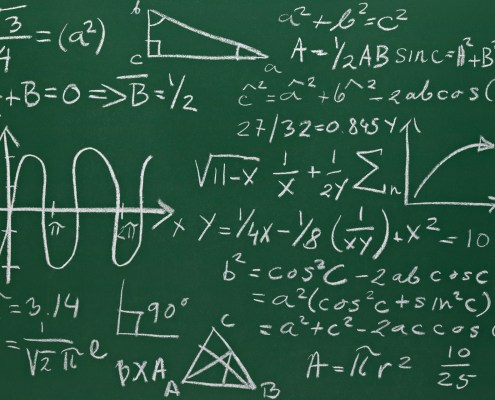 √3/4 = (a²)
b
c
a
a² + b² = c²
A = 1/2 AB sin c = A² + B
+ B = 0 => B̅ = 1/2
ĉ² = â² + b^² - 2abcos(
27/32 = 0.845Y
√11-x 1/x + 1/2Y Σn
π
2π
x
Y = 1/4x - 1/8 (1/xy) + x² = 10
b² = cos²C - 2ab cosc
= a²(cos²c + sin²c)
= a² + c² - 2accos
= 3.14
90°
= 1/√2π e
B×A
C
A
B
A = πr²
10/25